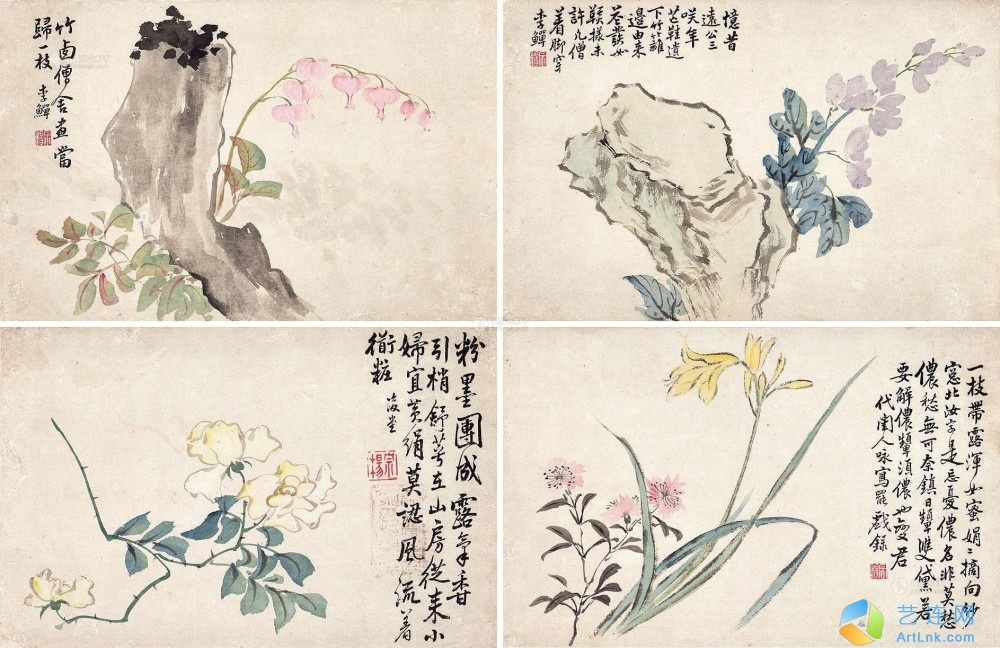 竹卤僧舍畫當
歸一枝 李鱓
憶昔
遠公三
咲年
芒鞋遺
下竹籬
邊由来
花發如
樣未
許凡僧
着脚穿
李鱓
粉墨團成露氣香
引梢舒萼在山房從来小
婦宜黄絹莫認風流着
衜粧 復堂
一枝帶露渾如蜜娟〻摘向紗
窓北汝字是忘憂儂名非莫愁
儂愁無可奈鎮日顰雙黛若
要解儂顰須儂也愛君
代閨人咏寫罷戲錄
艺连网
ArtLnk.com